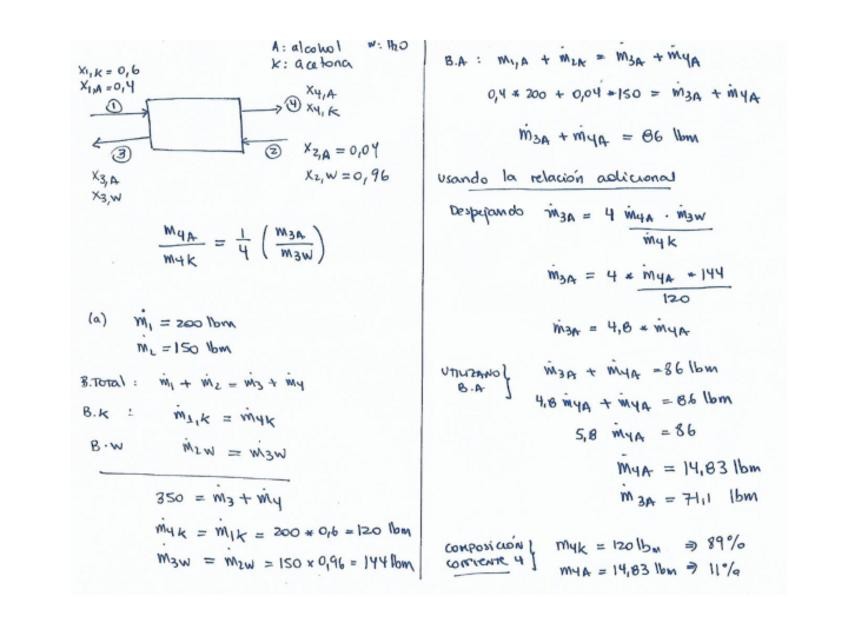 A: alcohol w: H2O
K: acetona
X1,K = 0,6
X1,A = 0,4
① ④ X4,A
X4,K
③ ② X2,A = 0,04
X2,W = 0,96
X3,A
X3,W
m4A / m4K = 1/4 (m3A / m3W)
(a) ṁ1 = 200 lbm
ṁ2 = 150 lbm
B.Total: ṁ1 + ṁ2 = ṁ3 + ṁ4
B.K : ṁ1,K = ṁ4K
B.W ṁ2W = ṁ3W
350 = ṁ3 + ṁ4
ṁ4K = ṁ1K = 200 * 0,6 = 120 lbm
ṁ3W = ṁ2W = 150 x 0,96 = 144 lbm
B.A : ṁ1,A + ṁ2A = ṁ3A + ṁ4A
0,4 * 200 + 0,04 * 150 = ṁ3A + ṁ4A
ṁ3A + ṁ4A = 86 lbm
Usando la relación adicional
Despejando ṁ3A = 4 ṁ4A · ṁ3W / ṁ4K
ṁ3A = 4 * ṁ4A * 144 / 120
ṁ3A = 4,8 * ṁ4A
UTILIZANO B.A } ṁ3A + ṁ4A = 86 lbm
4,8 ṁ4A + ṁ4A = 86 lbm
5,8 ṁ4A = 86
ṁ4A = 14,83 lbm
ṁ3A = 71,1 lbm
COMPOSICIÓN } m4K = 120 lbm ⇒ 89%
CORRIENTE 4 m4A = 14,83 lbm ⇒ 11%